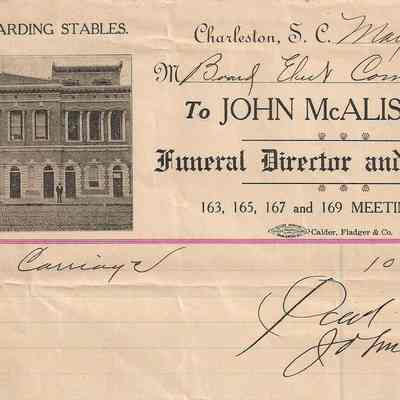 ARDING STABLES.
Charleston, S. C. May
M Board Elect Com
To JOHN McALIS
Funeral Director and
163, 165, 167 and 169 MEETIN
Calder, Fladger & Co.
Carriage 10
John